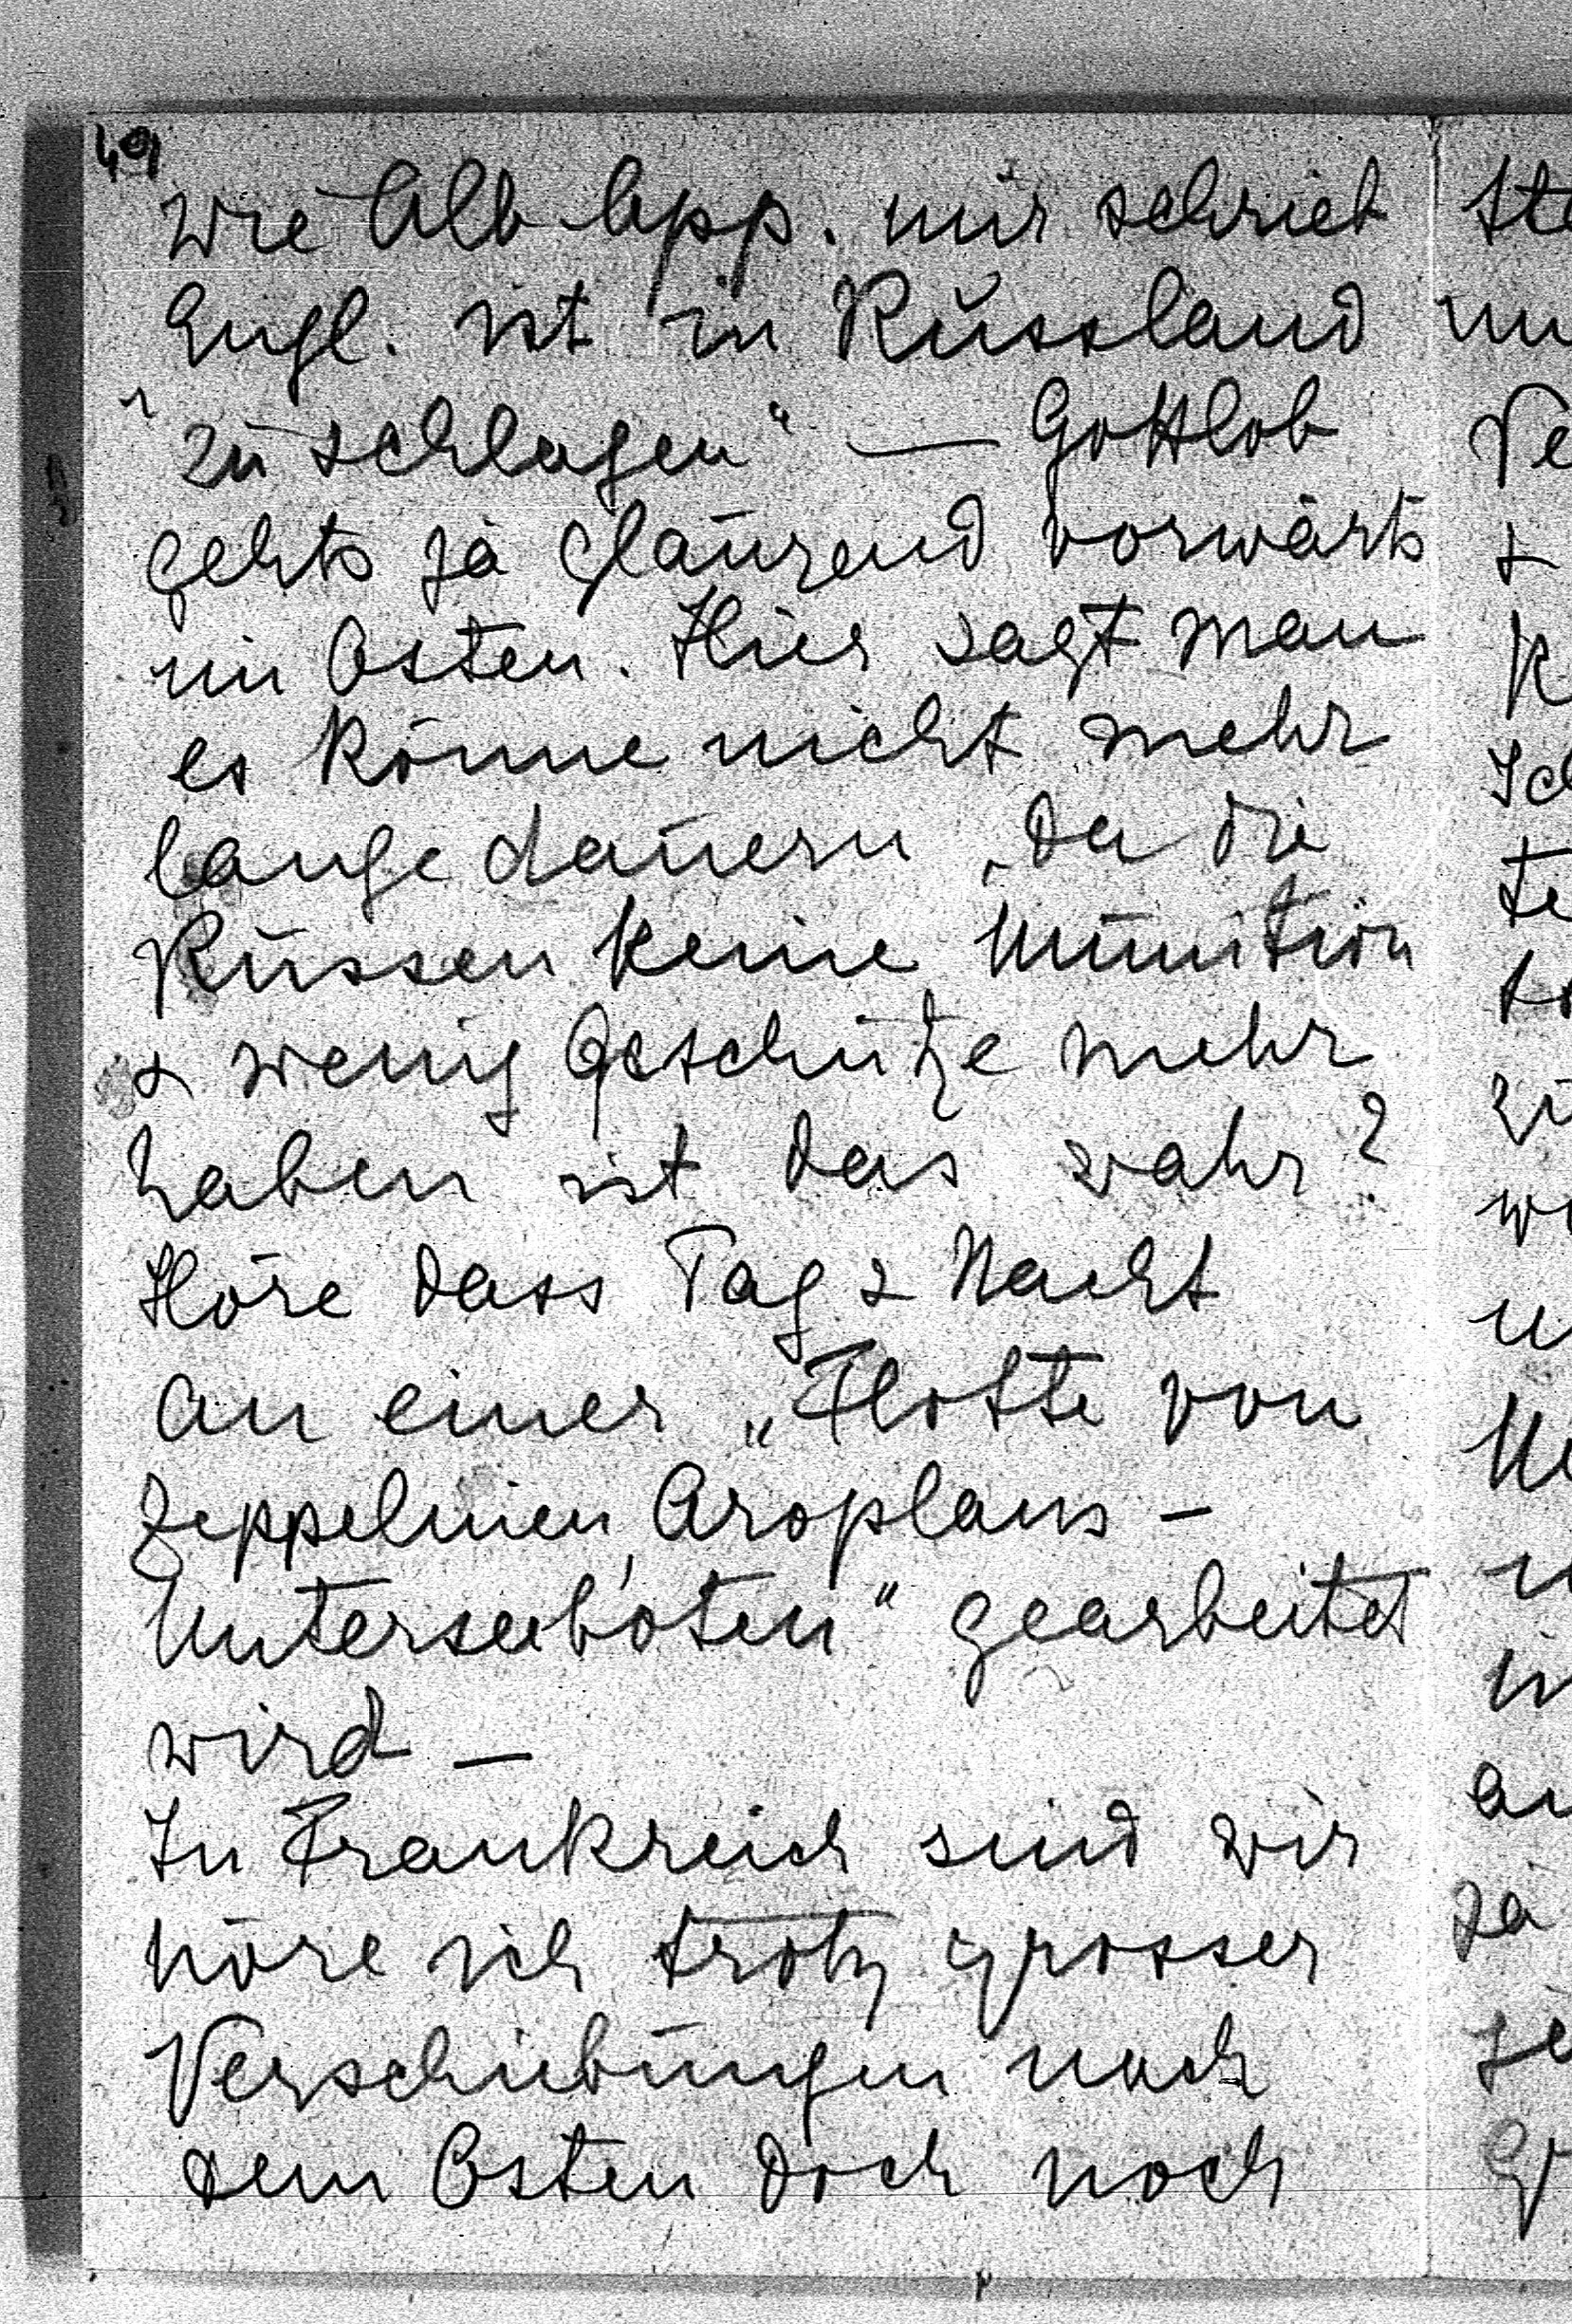 49
Wie Alb. Opp. mir schrieb
Engl. ist in Russland
"zu schlagen" — Gottlob
gehts ja glänzend vorwärts
im Osten. Hier sagt man
es könne nicht mehr
lange dauern, da die
Russen keine Munition
& wenig Geschütze mehr
haben ist das wahr?
Höre dass Tag & Nacht
an einer „Flotte von
Zeppelinen, Aroplans -
Unterseeboten" gearbeitet
wird —
In Frankreich sind wir
höre ich trotz grosser
Verschiebungen nach
dem Osten doch noch